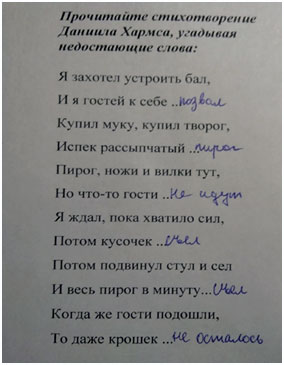 Прочитайте стихотворение
Даниила Хармса, угадывая
недостающие слова:
Я захотел устроить бал,
И я гостей к себе ..позвал
Купил муку, купил творог,
Испек рассыпчатый ..пирог
Пирог, ножи и вилки тут,
Но что-то гости ..не идут
Я ждал, пока хватило сил,
Потом кусочек ..съел
Потом подвинул стул и сел
И весь пирог в минуту...съел
Когда же гости подошли,
То даже крошек ..не осталось